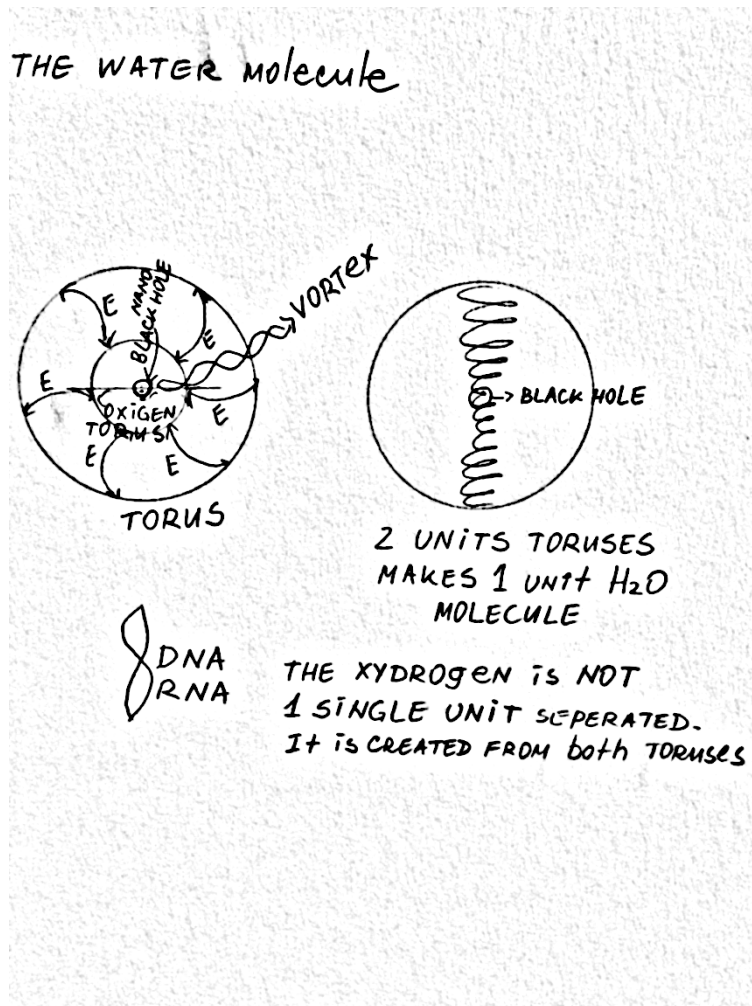 THE WATER Molecule
NANO
BLACK HOLE
VORTEX
E
E
E
E
E
E
OXiGEN
TORUS
TORUS
BLACK HOLE
2 UNiTS TORUSES
MAKES 1 UNit H₂O
MOLECULE
DNA
RNA
THE XYDROgEN iS NOT
1 SiNGLE UNiT SEPERATED.
It iS CREATED FROM both TORUSES